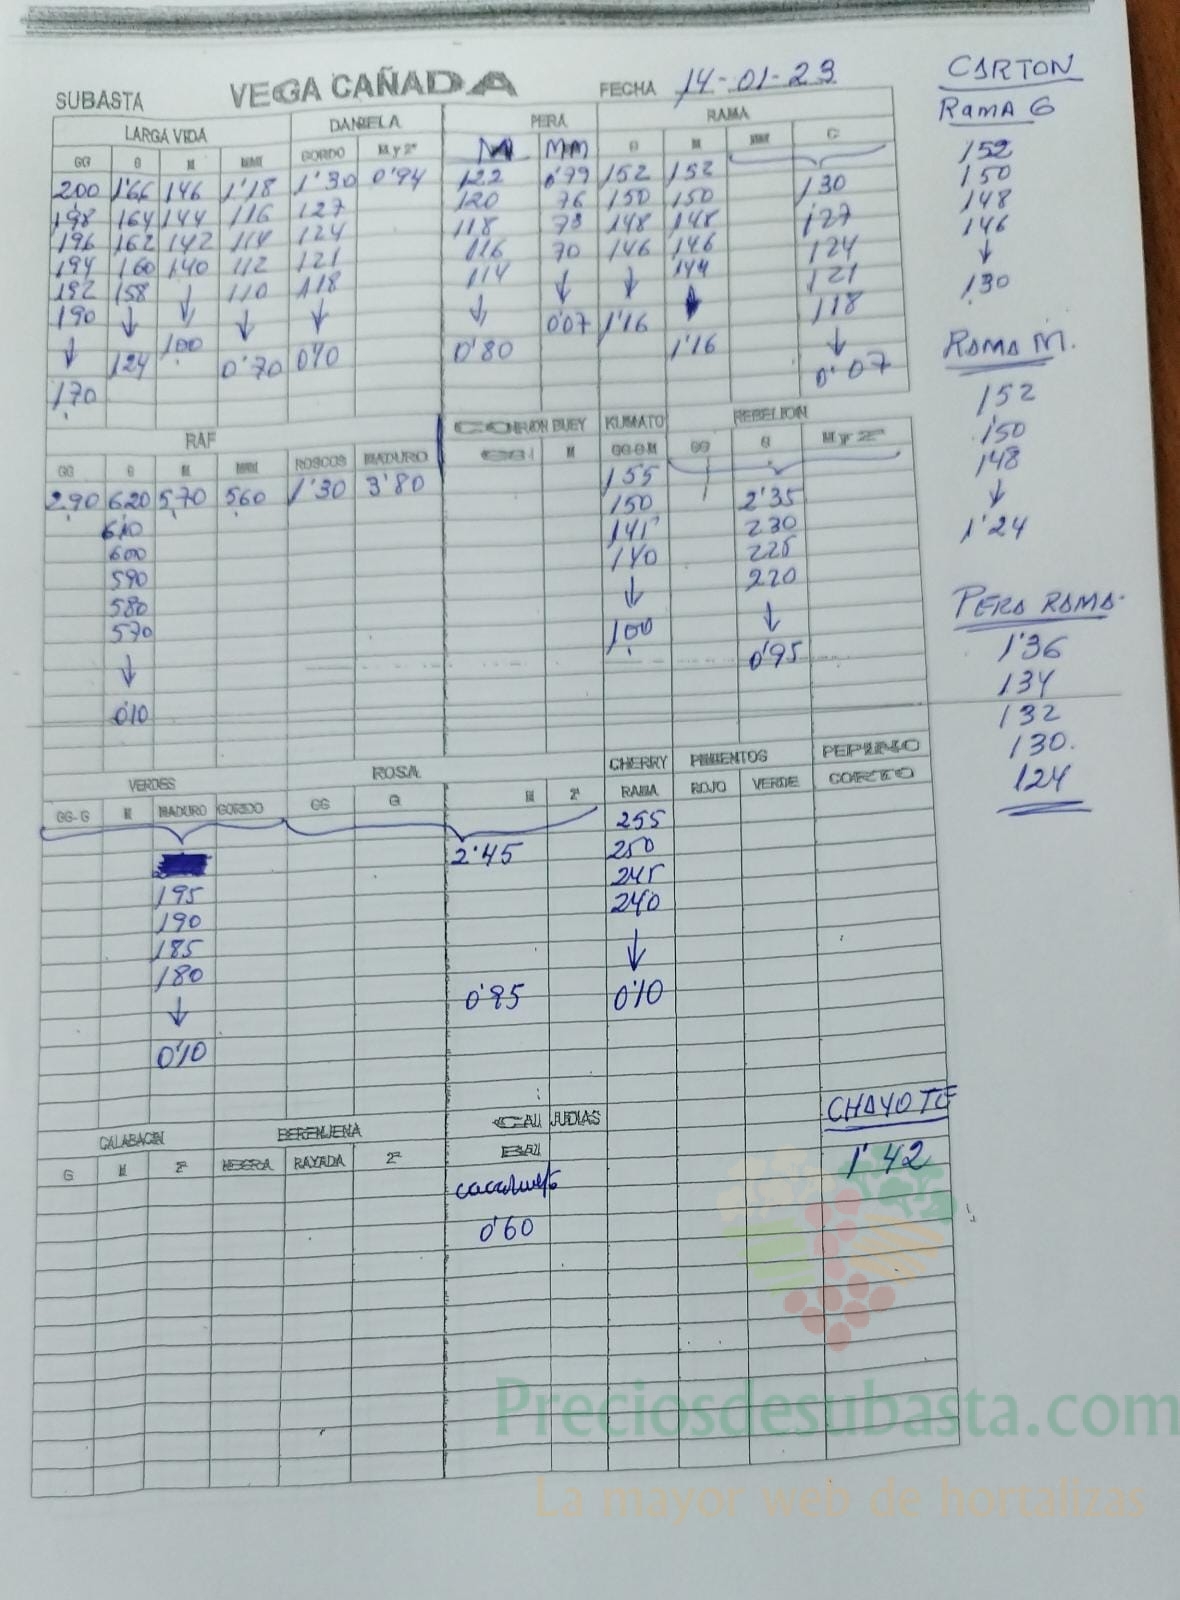 SUBASTA VEGA CAÑADA FECHA 14-01-23
LARGA VIDA DANIELA PERA RAMA
GG G M MMM GORDO M y 2ª M MM G M MMM C
200 1'66 146 1'18 1'30 0'94 122 0'79 152 152 130
198 164 144 116 127 120 76 150 150 127
196 162 142 114 124 118 73 148 148 124
194 160 140 112 121 116 70 146 146 121
192 158 ↓ 110 118 114 ↓ ↓ 144 118
190 ↓ 100 ↓ ↓ ↓ 0'07 1'16 ↓ ↓
↓ 124 0'70 0'10 0'80 1'16 0'07
170
RAF CORAZON BUEY KUMATO REBELION
GG G M MMM ROSCOS MADURO GG M GG G M GG G M y 2ª
2.90 620 5,70 560 1'30 3'80 155
610 150 2'35
600 141 230
590 140 225
580 ↓ 220
570 100 ↓
↓ 0'95
0'10
VERDES ROSA CHERRY PIMIENTOS PEPINO
GG-G M MADURO GORDO GG G M 2ª RAMA ROJO VERDE CORTO
255
2'45 250
195 245
190 240
185 ↓
180 0'95 0'10
↓
0'10
CALABACIN BERENJENA JUDIAS CHAYOTE
G M 2ª NEGRA RAYADA 2ª 1'42
0'60
CARTON
RAMA G
152
150
148
146
↓
130
RAMA M.
152
150
148
↓
1'24
PERA RAMA.
1'36
134
132
130.
124
Preciosdesubasta.com
La mayor web de hortalizas